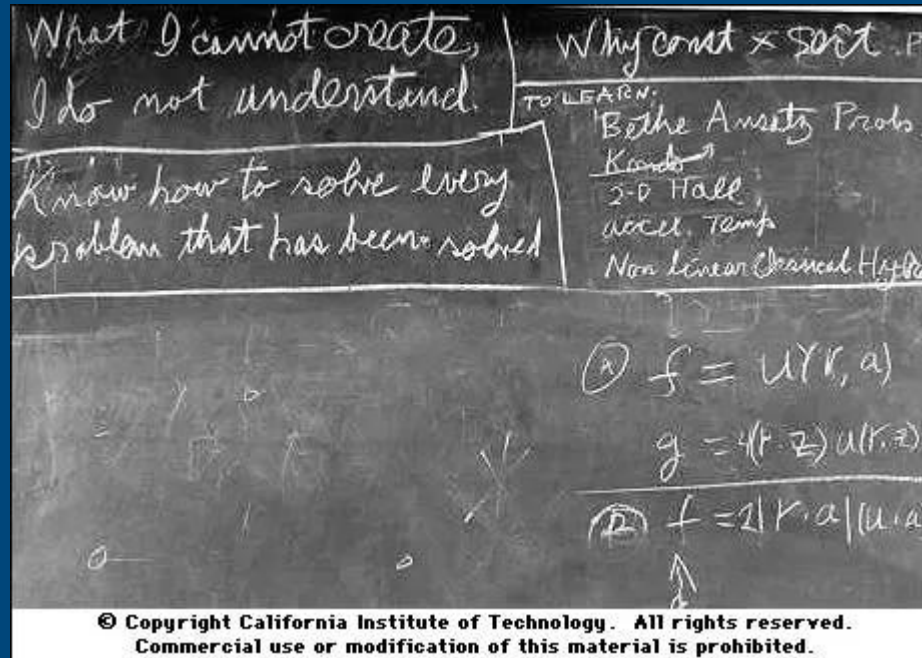 What I cannot create,
I do not understand.
Know how to solve every
problem that has been solved
Why const × sort . P
TO LEARN:
Bethe Ansatz Probs
Kondo
2-D Hall
accel. Temp
Non linear Classical Hydro
A f = u(r, a)
g = 4(r·z) u(r, z)
B f = 2|r·a|(u·a
© Copyright California Institute of Technology. All rights reserved.
Commercial use or modification of this material is prohibited.